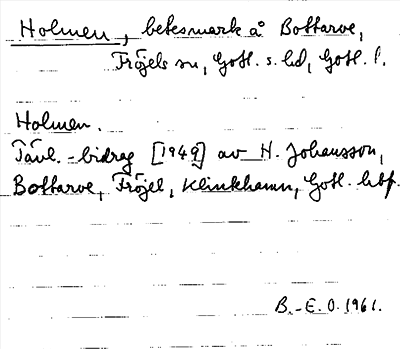 Holmen, betesmark å Bottarve,
Fröjels sn, Gotl. s. hd, Gotl. l.
Holmen.
Tävl.-bidrag [1949] av H. Johansson,
Bottarve, Fröjel, Klintehamn, Gotl.
B.-E.O. 1961.